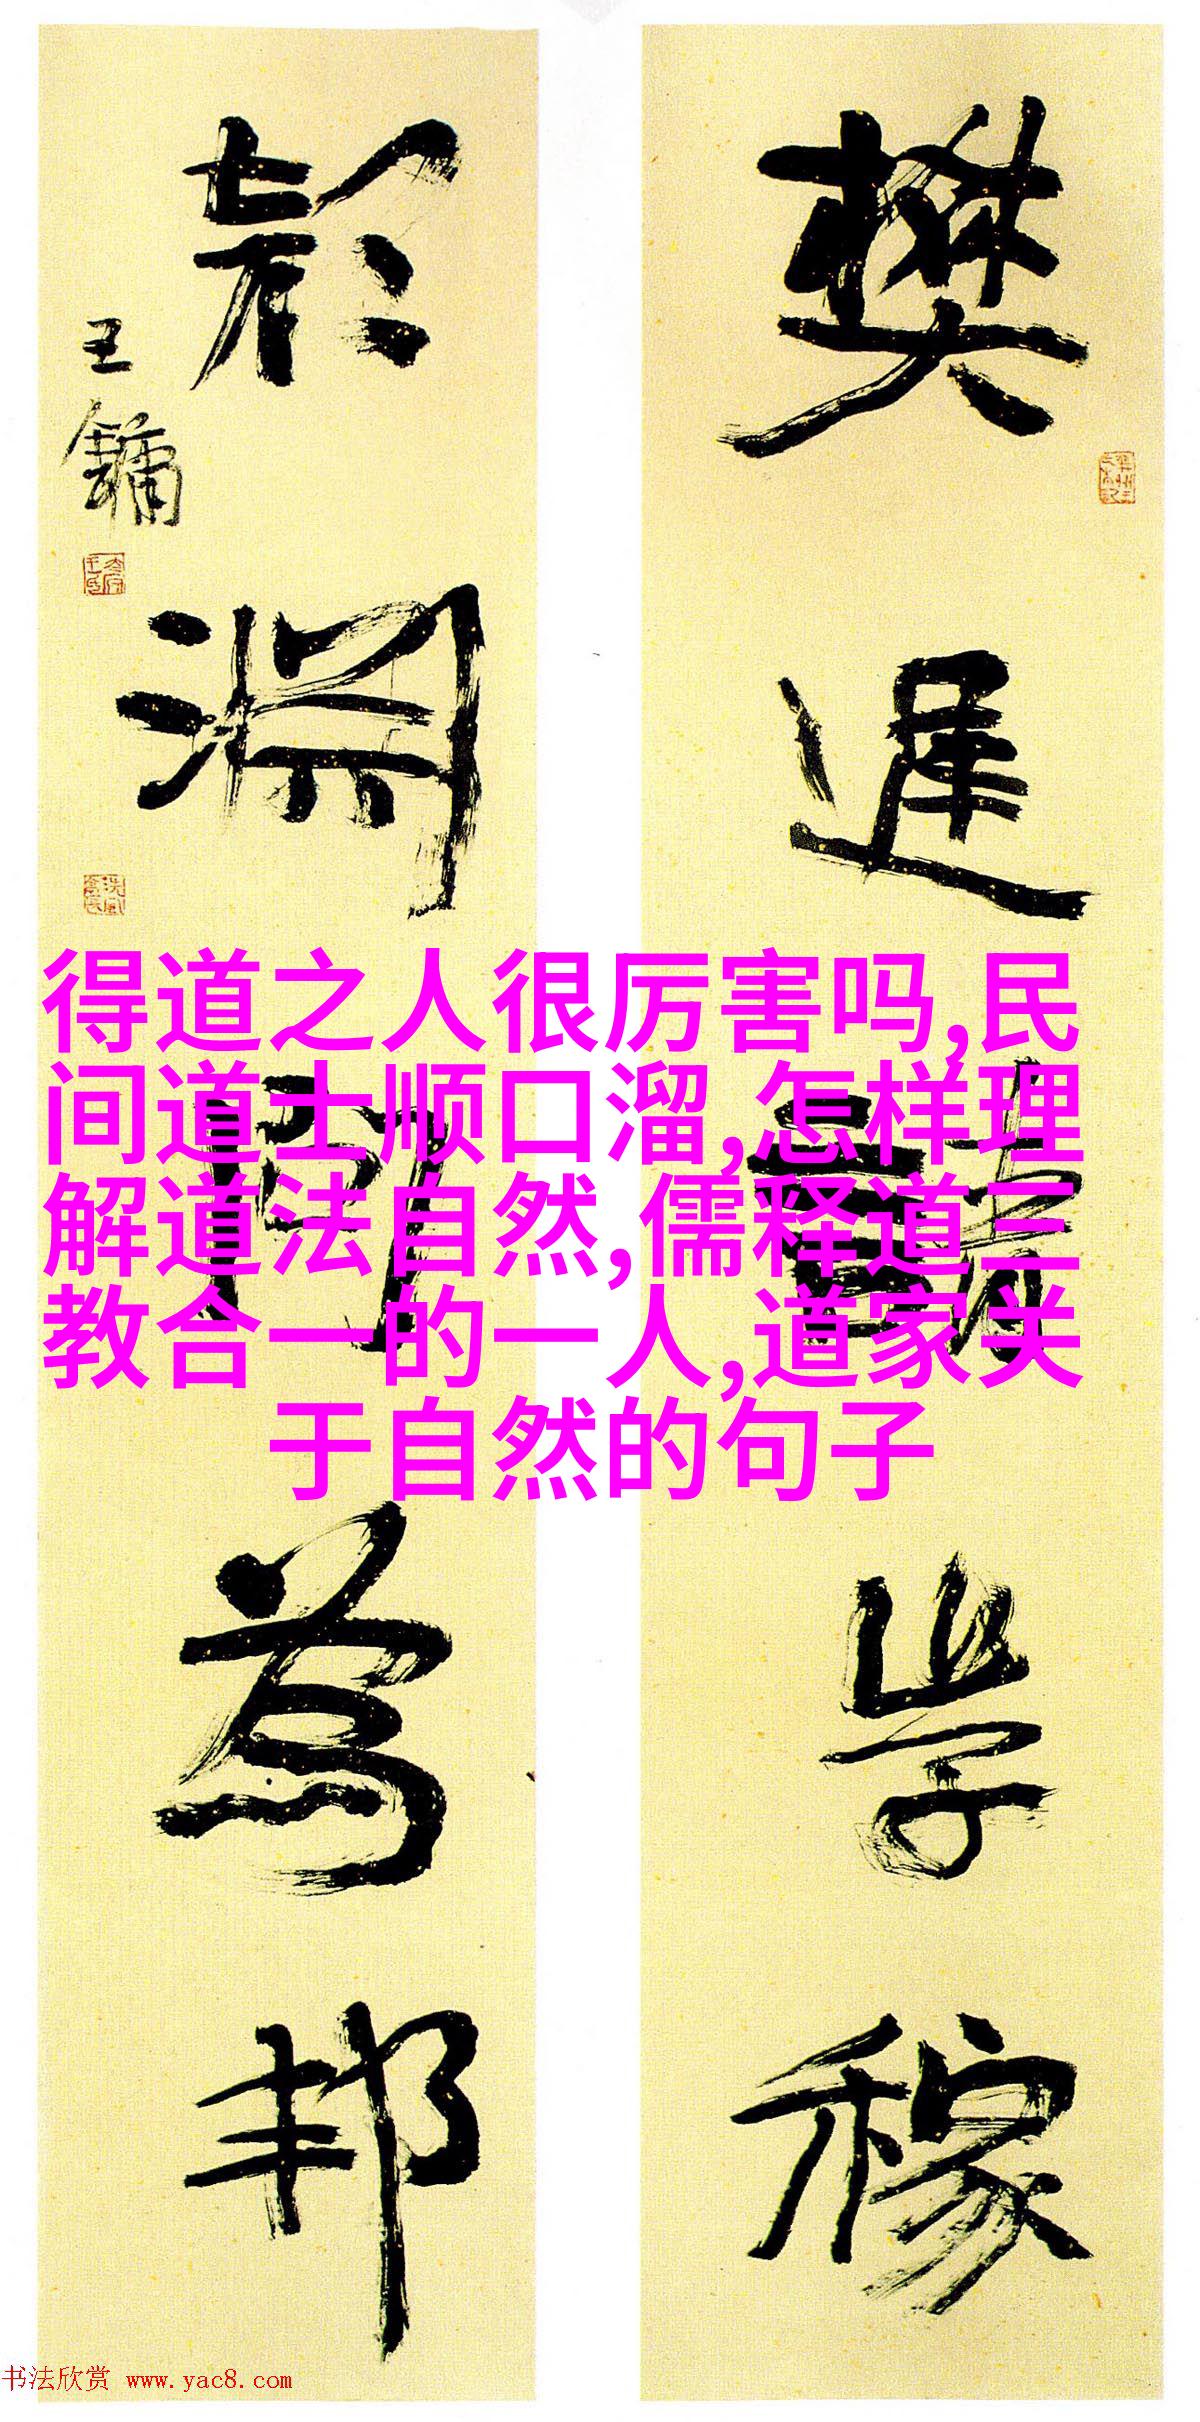 樊遲請學稼
顏淵問為邦
王鏞
得道之人很厉害吗,民
间道士顺口溜,怎样理
解道法自然,儒释道三
教合一的一人,道家关
于自然的句子
书法欣赏 www.yac8.com